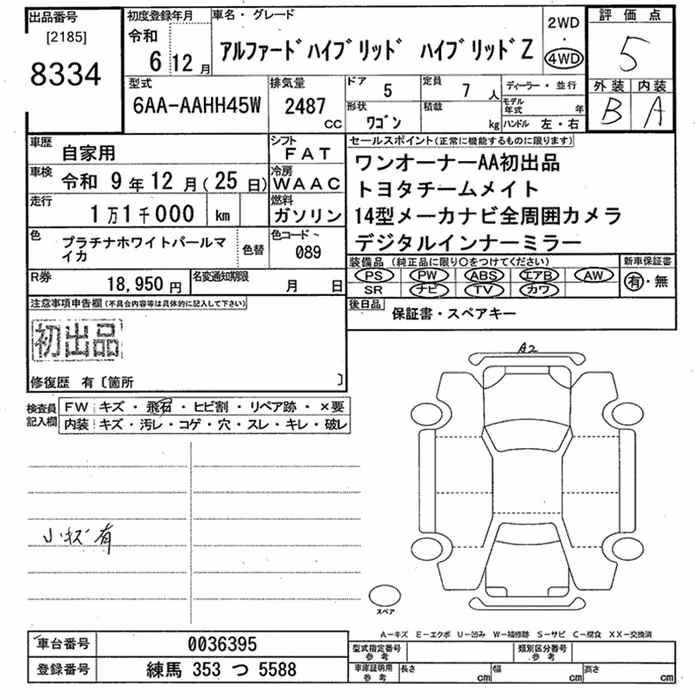 出品番号
[2185]
8334
初度登録年月
令和
6 12 月
車名・グレード
アルファードハイブリッド ハイブリッドZ
2WD
・
4WD
評価点
5
外装 内装
B A
型式
6AA-AAHH45W
排気量
2487 cc
ドア
5
定員
7 人
形状
ワゴン
積載
kg
ディーラー・並行
モデル年式 年
ハンドル 左・右
車歴
自家用
シフト
FAT
車検
令和 9 年 12 月 (25 日)
冷房
WAAC
走行
1 万 1 千 000 km
燃料
ガソリン
色
プラチナホワイトパールマイカ
色替
色コード
089
R券
18,950 円
名変通知期限
月 日
セールスポイント(正常に機能するものに限ります)
ワンオーナーAA初出品
トヨタチームメイト
14型メーカナビ全周囲カメラ
デジタルインナーミラー
装備品 (純正品に限り〇をつけてください)
PS PW ABS エアB AW
SR ナビ TV カワ
新車保証書
有・無
後日品
保証書・スペアキー
注意事項申告欄(不具合内容等は具体的に記入して下さい)
初出品
修復歴 有〔箇所 〕
検査員記入欄
FW キズ・飛石・ヒビ割・リペア跡・×要
内装 キズ・汚レ・コゲ・穴・スレ・キレ・破レ
小キズ有
A2
スペア
A-キズ E-エクボ U-凹み W-補修跡 S-サビ C-腐食 XX-交換済
車台番号
0036395
登録番号
練馬 353 つ 5588
型式指定番号
参考
類別区分番号
参考
車庫証明用
参考
長さ cm
幅 cm
高さ cm